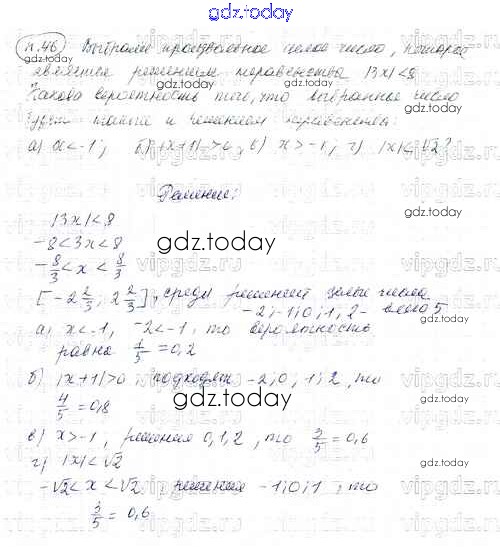 gdz.today
п.46 Выбрали произвольное целое число, которое
является решением неравенства |3x|<8
Какова вероятность того, что выбранное число
будет также и решением неравенства:
а) x<-1; б) |x+1|>0; в) x>-1; г) |x|<√2?
gdz.today
Решение:
|3x|<8
-8<3x<8
gdz.today
-8/3<x<8/3
[-2 2/3, 2 2/3], среди решений целые числа
-2,-1,0,1,2 - всего 5
а) x<-1, -2<-1, то вероятность
равна 1/5=0,2
б) |x+1|>0 подходят -2;0;1;2, то
4/5=0,8
gdz.today
в) x>-1, решения 0,1,2, то 3/5=0,6
г) |x|<√2
gdz.today
-√2<x<√2 решения -1;0;1, то
3/5=0,6
gdz.today